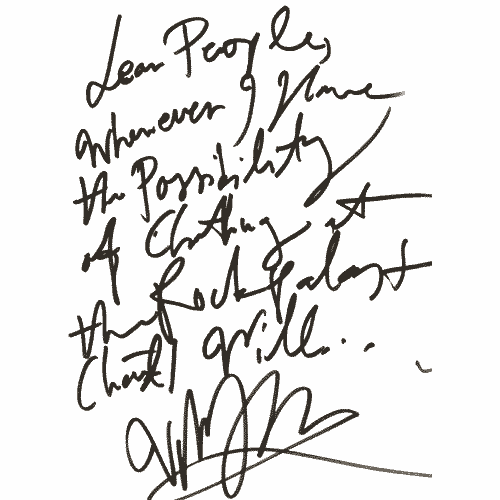 Dear People,
whenever I have
the Possibility
of Chatting at
the Rockpalast
Chat I will...